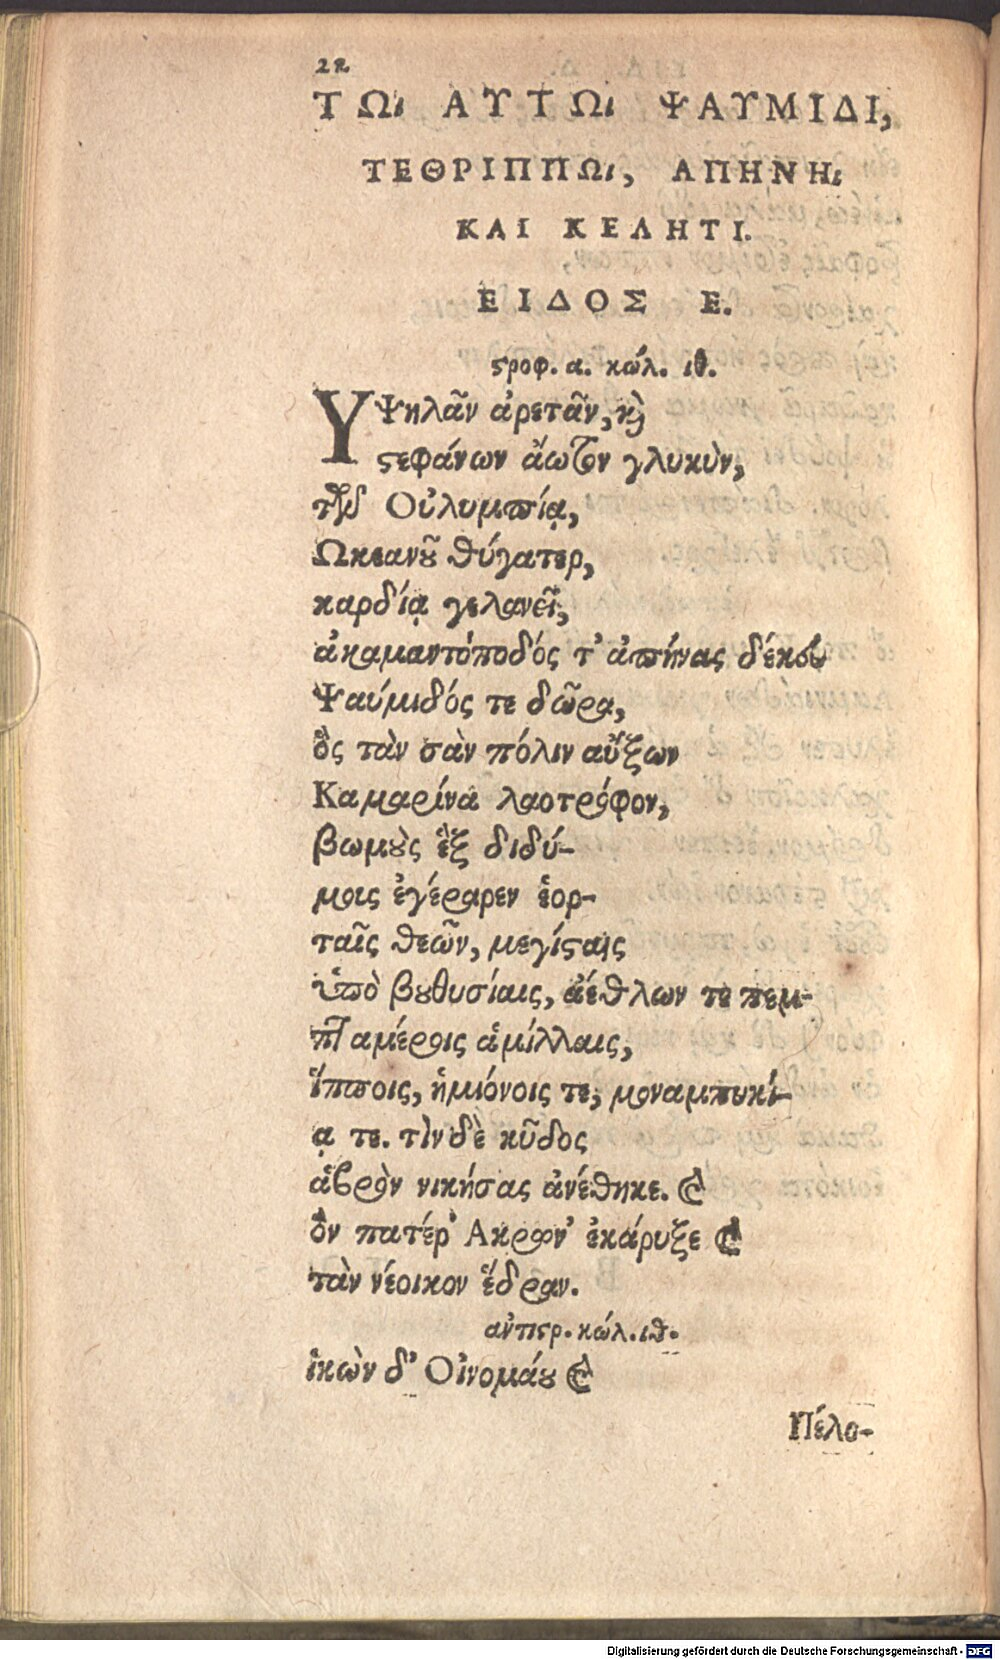 22
ΤΩι ΑΥΤΩι ΨΑΥΜΙΔΙ,
ΤΕΘΡΙΠΠΩι, ΑΠΗΝΗι
ΚΑΙ ΚΕΛΗΤΙ.
ΕΙΔΟΣ Ε.
ϛροφ. α. κώλ. ιθ.
ΥΨηλᾶν ἀρετᾶν, κὶ
ϛεφάνων ἄωτον γλυκὺν,
τῶν Οὐλυμπίᾳ,
Ωκεανοῦ θύγατερ,
καρδίᾳ γελανεῖ,
ἀκαμαντόποδός τ' ἀπήνας δέκευ
Ψαύμιδός τε δῶρα,
ὃς τὰν σὰν πόλιν αὔξων
Καμαρίνα λαοτρόφον,
βωμοὺς ἓξ διδύ-
μοις ἐγέραρεν ἑορ-
ταῖς θεῶν, μεγίϛαις
ὑπὸ βουθυσίαις, ἀέθλων τε πεμ-
πταμέροις ἁμίλλαις,
ἵπποις, ἡμιόνοις τε, μοναμπυκί-
ᾳ τε. τὶν δὲ κῦδος
ἁβρὸν νικήσας ἀνέθηκε. ☾
ὃν πατέρ' Ακρον' ἐκάρυξε ☾
τὰν νέοικον ἕδραν.
αντιϛρ. κώλ. ιθ.
ἱκὼν δ' Οἰνομάου ☾
Πέλο-
Digitalisierung gefördert durch die Deutsche Forschungsgemeinschaft - DFG